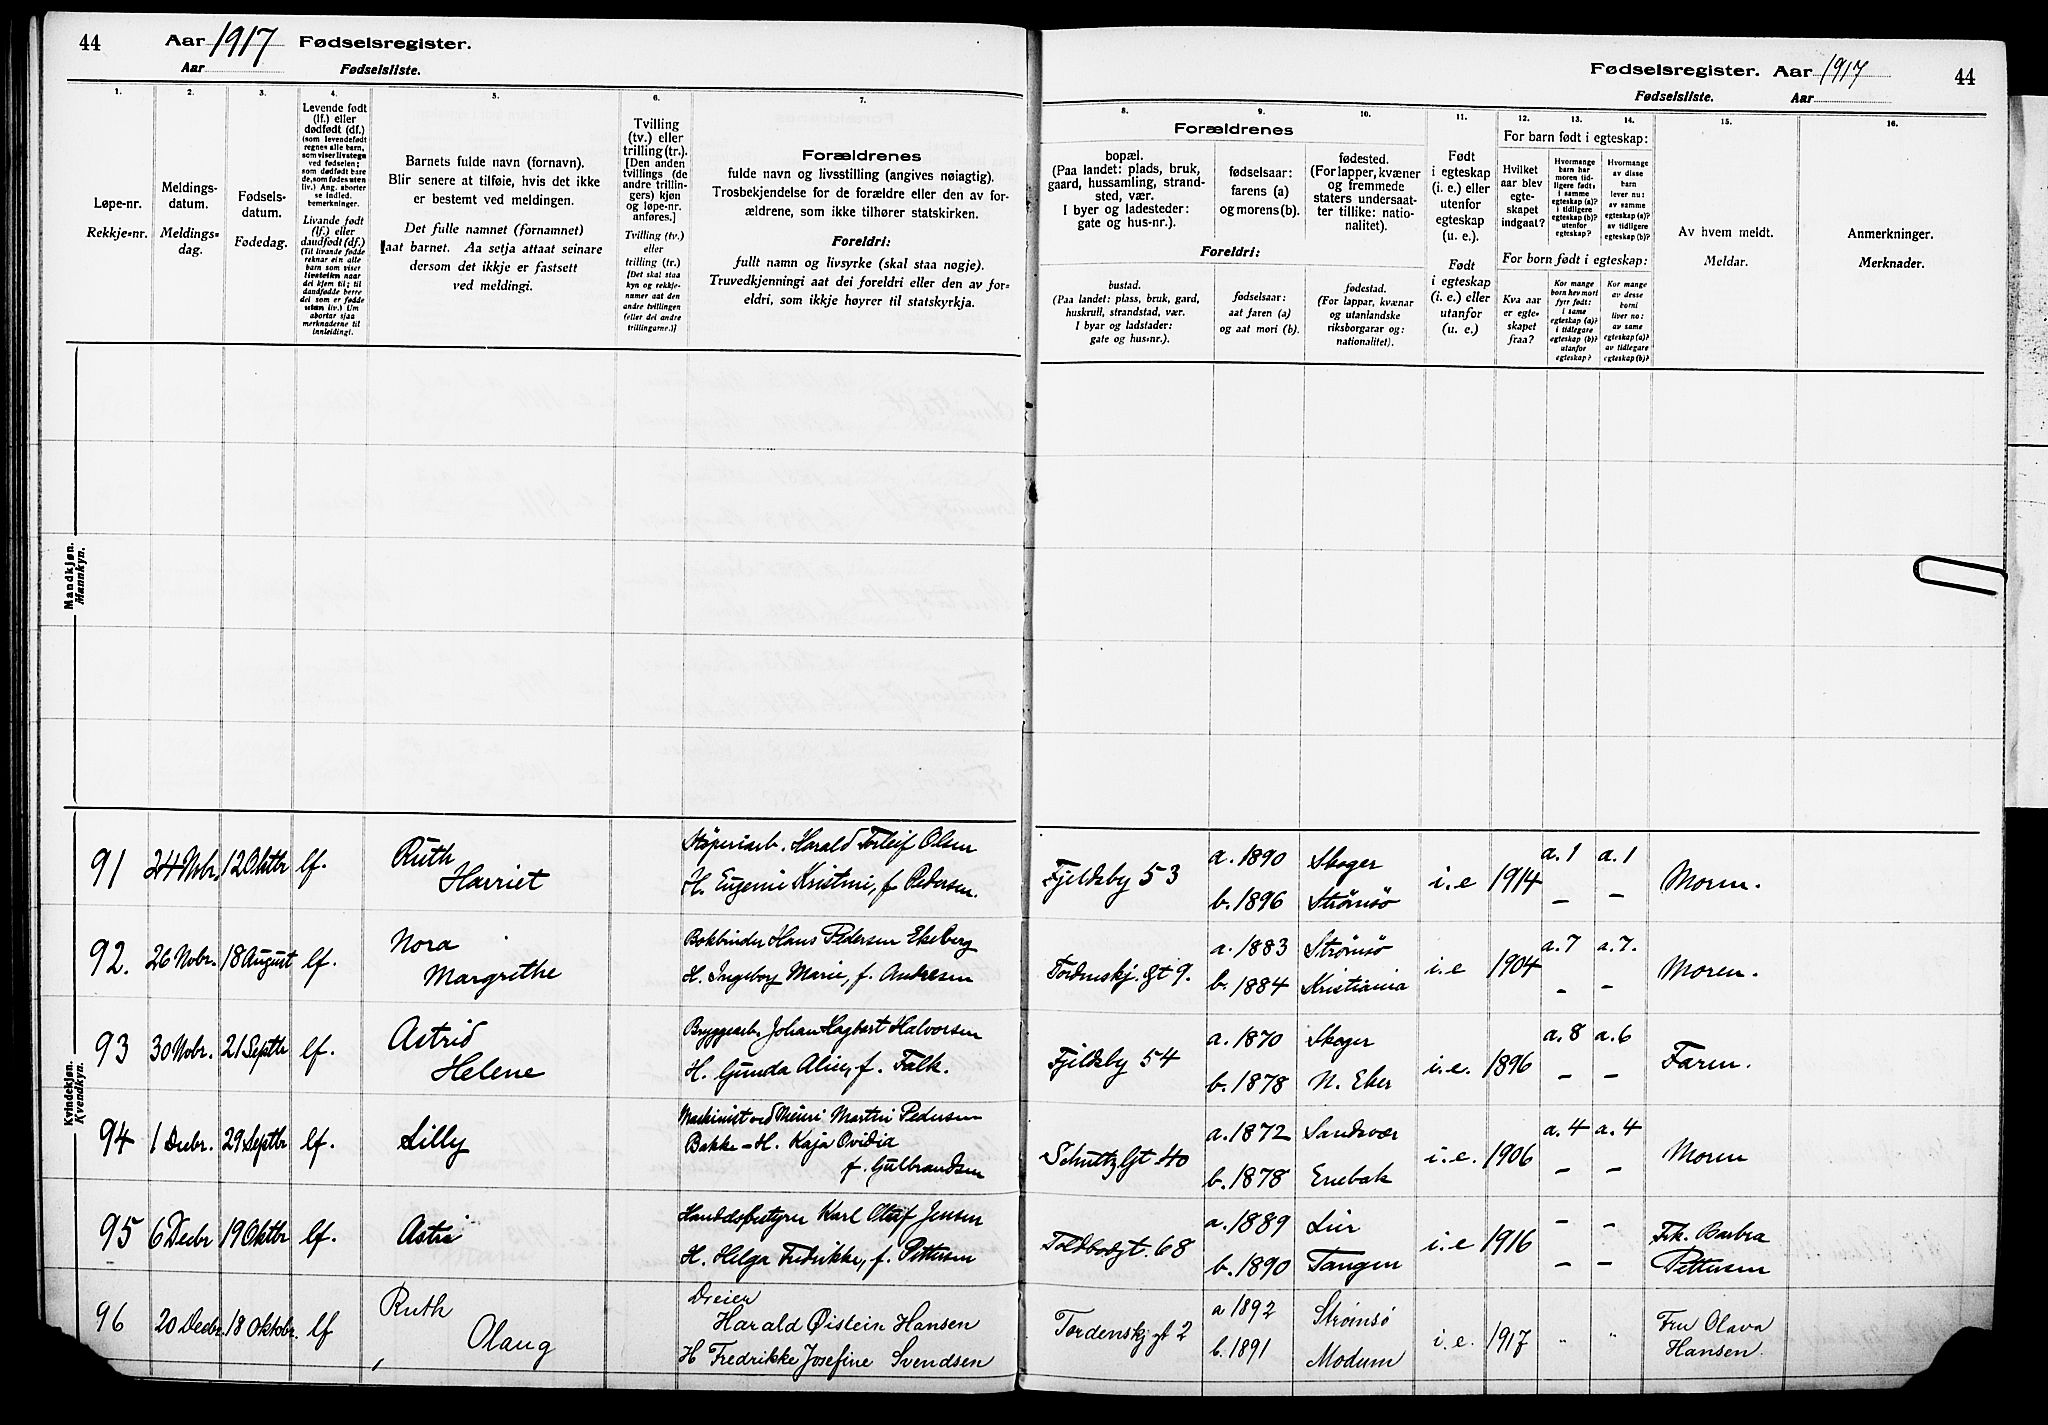 44
Aar 1917 Fødselsregister.
Aar Fødselsliste.
1.
Løpe-nr.
Rekkje-nr.
2.
Meldings-
datum.
Meldings-
dag.
3.
Fødsels-
datum.
Fødedag.
4.
Levende født
(lf.) eller
dødfødt (df.)
Livande født
(lf.) eller
daudfødt (df.)
5.
Barnets fulde navn (fornavn).
Blir senere at tilføie, hvis det ikke
er bestemt ved meldingen.
Det fulle namnet (fornamnet)
aat barnet. Aa setja attaat seinare
dersom det ikkje er fastsett
ved meldingi.
6.
Tvilling
(tv.) eller
trilling (tr.).
[Den anden
tvillings (de
andre trillin-
gers) kjøn
og løpe-nr.
anføres.]
Tvilling (tv.)
eller
trilling (tr.)
[Det skal staa
kyn og rekkje-
numer aat den
andre tvillingen
(eller dei andre
trillingarne.)]
7.
Forældrenes
fulde navn og livsstilling (angives nøiagtig).
Trosbekjendelse for de forældre eller den av for-
ældrene, som ikke tilhører statskirken.
Foreldri:
fullt namn og livsyrke (skal staa nøgje).
Truvedkjenningi aat dei foreldri eller den av for-
eldri, som ikkje høyrer til statskyrkja.
Fødselsregister. Aar 1917
44
Fødselsliste. Aar
Forældrenes
8.
bopæl.
(Paa landet: plads, bruk,
gaard, hussamling, strand-
sted, vær.
I byer og ladesteder:
gate og hus-nr.).
Foreldri:
bustad.
(Paa landet: plass, bruk, gard,
huskrull, strandstad, vær.
I byar og ladstader:
gate og hus-nr.).
9.
fødselsaar:
farens (a)
og morens (b).
fødselsaar:
aat faren (a)
og aat mori (b).
10.
fødested.
(For lapper, kvæner
og fremmede
staters undersaat-
ter tillike: natio-
nalitet).
fødestad.
(For lappar, kvænar
og utanlandske
riksborgarar og:
nationalitet).
11.
Født
i egteskap
(i. e.) eller
utenfor
egteskap
(u. e.).
Født
i egteskap
(i. e.) eller
utanfor
(u. e.)
12. 13. 14.
For barn født i egteskap:
Hvilket
aar blev
egte-
skapet
indgaat?
Hvormange
barn har
moren tid-
ligere født:
i samme
egteskap (a)?
i tidligere
egteskap (b)?
utenfor
egteskap?
Hvormange
av disse
barn
lever nu:
av samme
egteskap (a)?
av tidligere
egteskap (b)?
For born født i egteskap:
Kva aar
er egte-
skapet
fraa?
Kor mange
born hev mori
fyrr født:
i same
egteskap (a)?
i tidlegare
egteskap (b)?
utanfor
egteskap?
Kor mange
av desse
borni
liver no:
av same
egteskap (a)?
av tidlegare
egteskap (b)?
15.
Av hvem meldt.
Meldar.
16.
Anmerkninger.
Merknader.
Mandkjøn.
Mannkyn.
Kvindekjøn.
Kvendkyn.
91 24 Nvbr. 12 Oktbr lf. Ruth
Harriet
Støperiarb. Harald Torleif Olsen
H. Eugenie Kristine, f. Pedersen.
Fjeldsby 53 a. 1890 Skoger
b. 1896 Strømsö i. e 1914 a. 1 a. 1
– –
Moren.
92. 26 Nvbr. 18 August lf. Nora
Margrethe
Bokbinder Hans Pedersen Ekeberg
H. Ingeborg Marie, f. Andresen
Tordenskj. gt 9. a. 1883 Strömsö
b. 1884 Kristiania i. e 1904 a. 7 a. 7.
– –
Moren.
93 30 Nvbr. 21 Septbr lf. Astrid
Helene
Bryggearb. Johan Hagbart Halvorsen
H. Gunda Aline, f. Falk.
Fjeldsby 54 a. 1870 Skoger
b. 1878 N. Eker i. e. 1896 a. 8 a. 6
– –
Faren.
94 1 Decbr. 29 Septbr lf. Lilly
Maskinist ved Meieri Martin Pedersen
Bakke – H. Kaja Ovidia
f. Gulbrandsen
Schultzgt 40 a. 1872 Sandsvær
b. 1878 Enebak i. e. 1906 a. 4 a. 4
– –
Moren
95 6 Decbr 19 Oktbr lf. Astri
Handelsbestyrer Karl Oluf Jensen
H. Helga Fredrikke, f. Pettersen
Toldbodgt. 68 a. 1889 Lier
b. 1890 Tangen i. e 1916 – –
– –
Frk. Barbra
Pettersen
96 20 Decbr. 18 Oktobr. lf Ruth
Olaug
Dreier
Harald Øistein Hansen
H Fredrikke Josefine Svendsen
Tordenskj gt 2 a 1892 Strömsö
b. 1891 Modum i. e. 1917 " "
Fru Olava
Hansen.